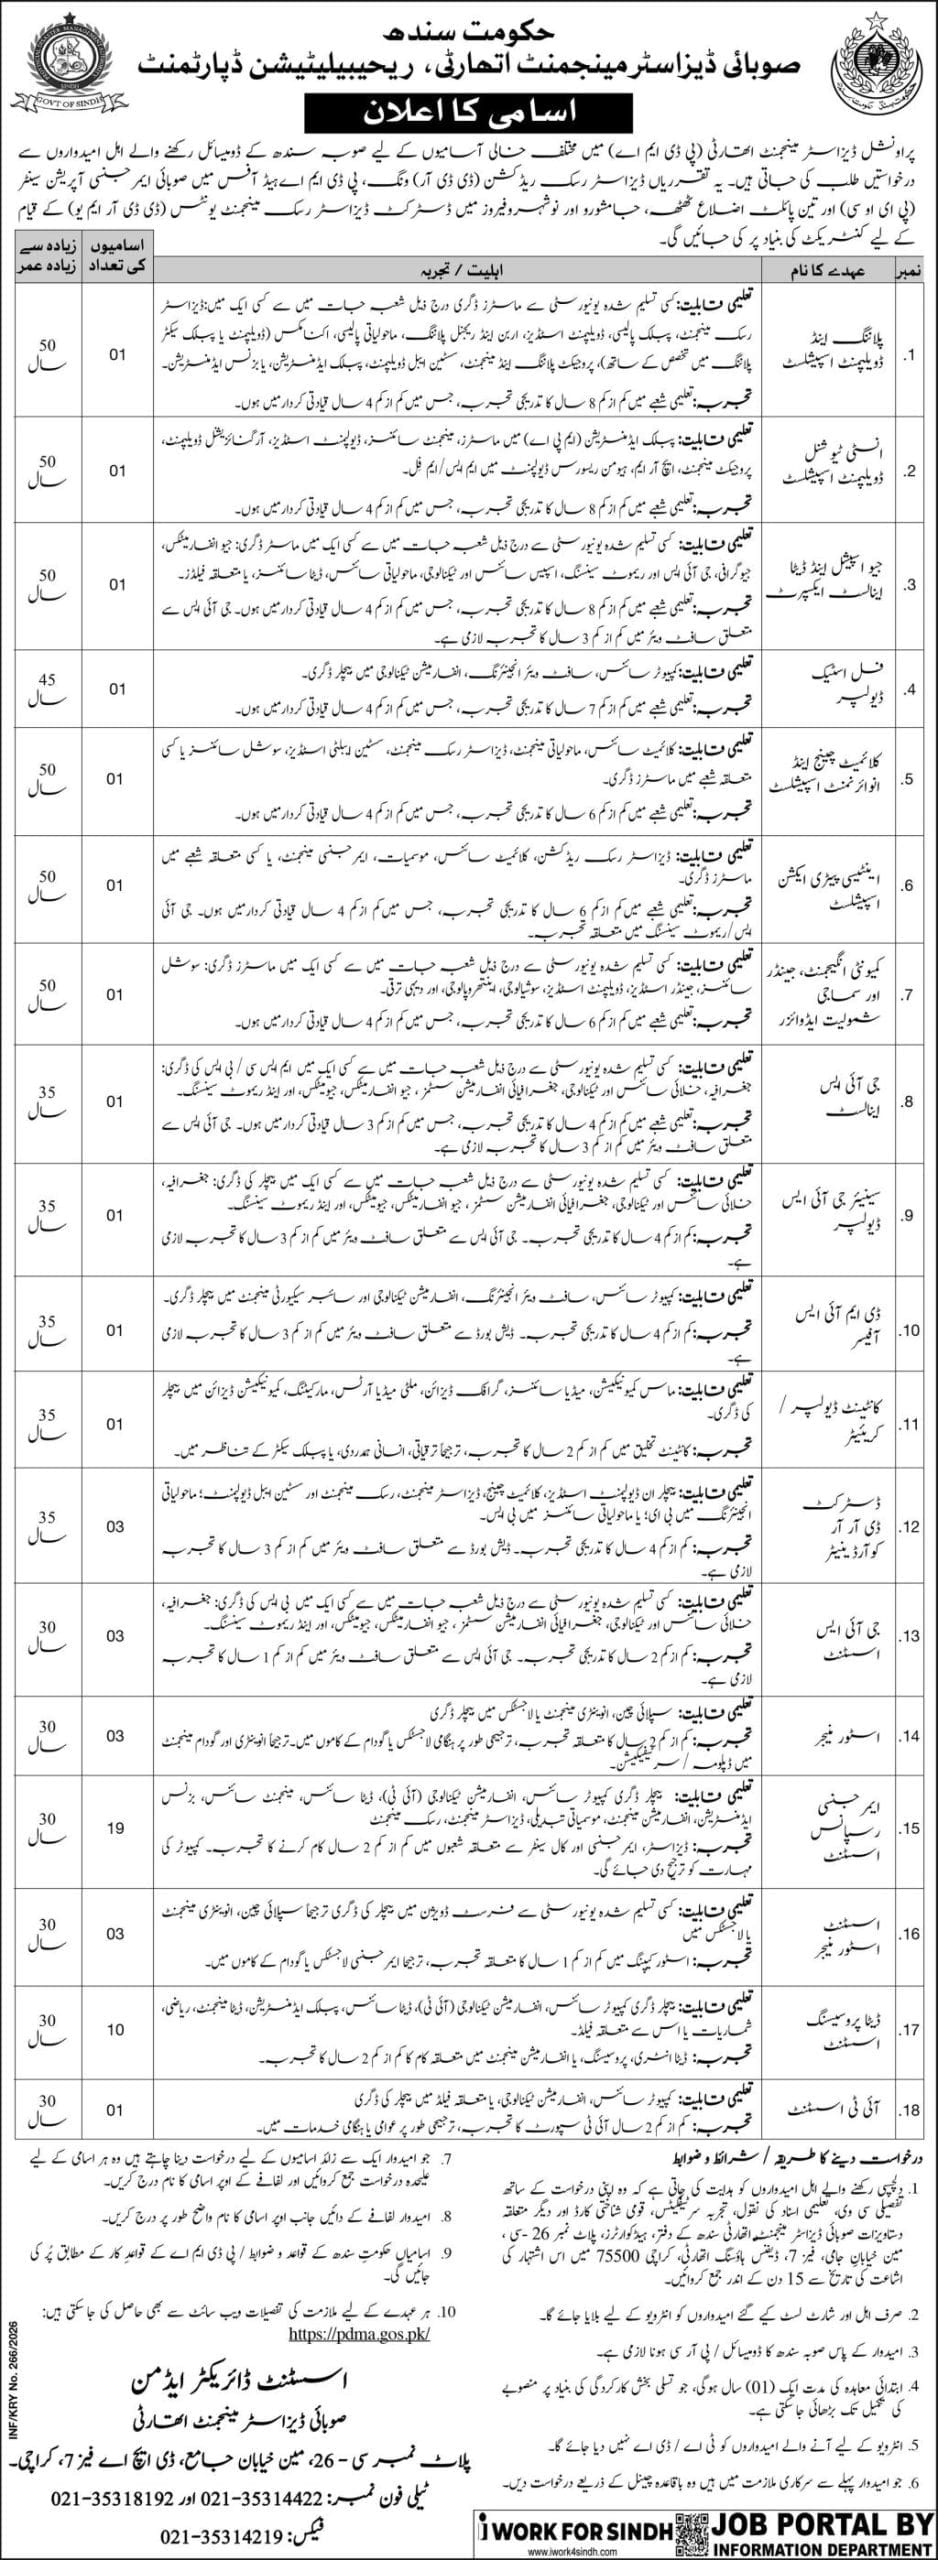 حکومت سندھ
صوبائی ڈیزاسٹر مینجمنٹ اتھارٹی، ریحیبیلیٹیشن ڈپارٹمنٹ
GOVT OF SINDH
اسامی کا اعلان
پراونشل ڈیزاسٹر مینجمنٹ اتھارٹی (پی ڈی ایم اے) میں مختلف خالی آسامیوں کے لیے صوبہ سندھ کے ڈومیسائل رکھنے والے اہل امیدواروں سے
درخواستیں طلب کی جاتی ہیں۔ یہ تقرریاں ڈیزاسٹر رسک ریڈکشن (ڈی ڈی آر) ونگ، پی ڈی ایم اے ہیڈ آفس میں صوبائی ایمرجنسی آپریشن سینٹر
(پی ای او سی) اور تین پائلٹ اضلاع ٹھٹھہ، جامشورو اور نوشہروفیروز میں ڈسٹرکٹ ڈیزاسٹر رسک مینجمنٹ یونٹس (ڈی ڈی آر ایم یو) کے قیام
کے لیے کنٹریکٹ کی بنیاد پر کی جائیں گی۔
نمبر عہدے کا نام اہلیت / تجربہ اسامیوں کی تعداد زیادہ سے زیادہ عمر
1. پلاننگ اینڈ ڈویلپمنٹ اسپیشلسٹ
تعلیمی قابلیت: کسی تسلیم شدہ یونیورسٹی سے ماسٹرز ڈگری درج ذیل شعبہ جات میں سے کسی ایک میں: ڈیزاسٹر
رسک مینجمنٹ، پبلک پالیسی، ڈویلپمنٹ اسٹڈیز، اربن اینڈ ریجنل پلاننگ، ماحولیاتی پالیسی، اکنامکس (ڈویلپمنٹ یا پبلک سیکٹر
پلاننگ میں تخصص کے ساتھ)، پروجیکٹ پلاننگ اینڈ مینجمنٹ، سسٹین ایبل ڈویلپمنٹ، پبلک ایڈمنسٹریشن، یا بزنس ایڈمنسٹریشن۔
تجربہ: تعلیمی شعبے میں کم از کم 8 سال کا تدریجی تجربہ، جس میں کم از کم 4 سال قیادتی کردار میں ہوں۔
01
50 سال
2. انسٹی ٹیوشنل ڈویلپمنٹ اسپیشلسٹ
تعلیمی قابلیت: پبلک ایڈمنسٹریشن (ایم پی اے) میں ماسٹرز، مینجمنٹ سائنسز، ڈیولپمنٹ اسٹڈیز، آرگنائزیشنل ڈویلپمنٹ،
پروجیکٹ مینجمنٹ، ایچ آر ایم، ہیومن ریسورس ڈیولپمنٹ میں ایم ایس/ایم فل۔
تجربہ: تعلیمی شعبے میں کم از کم 8 سال کا تدریجی تجربہ، جس میں کم از کم 4 سال قیادتی کردار میں ہوں۔
01
50 سال
3. جیو اسپیشل اینڈ ڈیٹا اینالسٹ ایکسپرٹ
تعلیمی قابلیت: کسی تسلیم شدہ یونیورسٹی سے درج ذیل شعبہ جات میں سے کسی ایک میں ماسٹر ڈگری: جیو انفارمیٹکس،
جیوگرافی، جی آئی ایس اور ریموٹ سینسنگ، اسپیس سائنس اور ٹیکنالوجی، ماحولیاتی سائنس، ڈیٹا سائنسز، یا متعلقہ فیلڈز۔
تجربہ: تعلیمی شعبے میں کم از کم 8 سال کا تدریجی تجربہ، جس میں کم از کم 4 سال قیادتی کردار میں ہوں۔ جی آئی ایس سے
متعلق سافٹ ویئر میں کم از کم 3 سال کا تجربہ لازمی ہے۔
01
50 سال
4. فل اسٹیک ڈیولپر
تعلیمی قابلیت: کمپیوٹر سائنس، سافٹ ویئر انجینئرنگ، انفارمیشن ٹیکنالوجی میں بیچلر ڈگری۔
تجربہ: تعلیمی شعبے میں کم از کم 7 سال کا تدریجی تجربہ، جس میں کم از کم 4 سال قیادتی کردار میں ہوں۔
01
45 سال
5. کلائمیٹ چینج اینڈ انوائرنمنٹ اسپیشلسٹ
تعلیمی قابلیت: کلائمیٹ سائنس، ماحولیاتی مینجمنٹ، ڈیزاسٹر رسک مینجمنٹ، سسٹین ایبلٹی اسٹڈیز، سوشل سائنسز یا کسی
متعلقہ شعبے میں ماسٹرز ڈگری۔
تجربہ: تعلیمی شعبے میں کم از کم 6 سال کا تدریجی تجربہ، جس میں کم از کم 4 سال قیادتی کردار میں ہوں۔
01
50 سال
6. اینٹیسی پیٹری ایکشن اسپیشلسٹ
تعلیمی قابلیت: ڈیزاسٹر رسک ریڈکشن، کلائمیٹ سائنس، موسمیات، ایمرجنسی مینجمنٹ، یا کسی متعلقہ شعبے میں
ماسٹرز ڈگری۔
تجربہ: تعلیمی شعبے میں کم از کم 6 سال کا تدریجی تجربہ، جس میں کم از کم 4 سال قیادتی کردار میں ہوں۔ جی آئی
ایس/ریموٹ سینسنگ میں متعلقہ تجربہ۔
01
50 سال
7. کمیونٹی انگیجمنٹ، جینڈر اور سماجی شمولیت ایڈوائزر
تعلیمی قابلیت: کسی تسلیم شدہ یونیورسٹی سے درج ذیل شعبہ جات میں سے کسی ایک میں ماسٹرز ڈگری: سوشل
سائنسز، جینڈر اسٹڈیز، ڈویلپمنٹ اسٹڈیز، سوشیالوجی، اینتھروپالوجی، اور دیہی ترقی۔
تجربہ: تعلیمی شعبے میں کم از کم 6 سال کا تدریجی تجربہ، جس میں کم از کم 4 سال قیادتی کردار میں ہوں۔
01
50 سال
8. جی آئی ایس اینالسٹ
تعلیمی قابلیت: کسی تسلیم شدہ یونیورسٹی سے درج ذیل شعبہ جات میں سے کسی ایک میں ایم ایس سی / بی ایس کی ڈگری:
جغرافیہ، خلائی سائنس اور ٹیکنالوجی، جغرافیائی انفارمیشن سسٹمز، جیو انفارمیٹکس، جیومیٹکس، اور اینڈ ریموٹ سینسنگ۔
تجربہ: تعلیمی شعبے میں کم از کم 4 سال کا تدریجی تجربہ، جس میں کم از کم 3 سال قیادتی کردار میں ہوں۔ جی آئی ایس سے
متعلق سافٹ ویئر میں کم از کم 3 سال کا تجربہ لازمی ہے۔
01
35 سال
9. سینیئر جی آئی ایس ڈیولپر
تعلیمی قابلیت: کسی تسلیم شدہ یونیورسٹی سے درج ذیل شعبہ جات میں سے کسی ایک میں بیچلر کی ڈگری: جغرافیہ،
خلائی سائنس اور ٹیکنالوجی، جغرافیائی انفارمیشن سسٹمز، جیو انفارمیٹکس، جیومیٹکس، اور اینڈ ریموٹ سینسنگ۔
تجربہ: کم از کم 4 سال کا تدریجی تجربہ۔ جی آئی ایس سے متعلق سافٹ ویئر میں کم از کم 3 سال کا تجربہ لازمی
ہے۔
01
35 سال
10. ڈی ایم آئی ایس آفیسر
تعلیمی قابلیت: کمپیوٹر سائنس، سافٹ ویئر انجینئرنگ، انفارمیشن ٹیکنالوجی اور سائبر سیکیورٹی مینجمنٹ میں بیچلر ڈگری۔
تجربہ: کم از کم 4 سال کا تدریجی تجربہ۔ ڈیش بورڈ سے متعلق سافٹ ویئر میں کم از کم 3 سال کا تجربہ لازمی
ہے۔
01
35 سال
11. کانٹینٹ ڈیولپر / کریئیٹر
تعلیمی قابلیت: ماس کمیونیکیشن، میڈیا سائنسز، گرافک ڈیزائن، ملٹی میڈیا آرٹس، مارکیٹنگ، کمیونیکیشن ڈیزائن میں بیچلر
کی ڈگری۔
تجربہ: کانٹینٹ تخلیق میں کم از کم 2 سال کا تجربہ، ترجیحاً ترقیاتی، انسانی ہمدردی، یا پبلک سیکٹر کے تناظر میں۔
01
35 سال
12. ڈسٹرکٹ ڈی آر آر کوآرڈینیٹر
تعلیمی قابلیت: بیچلر ان ڈیولپمنٹ اسٹڈیز، کلائمیٹ چینج، ڈیزاسٹر مینجمنٹ، رسک مینجمنٹ اور سسٹین ایبل ڈیولپمنٹ؛ ماحولیاتی
انجینئرنگ میں بی ای؛ یا ماحولیاتی سائنسز میں بی ایس۔
تجربہ: کم از کم 4 سال کا تدریجی تجربہ۔ ڈیش بورڈ سے متعلق سافٹ ویئر میں کم از کم 3 سال کا تجربہ
لازمی ہے۔
03
35 سال
13. جی آئی ایس اسسٹنٹ
تعلیمی قابلیت: کسی تسلیم شدہ یونیورسٹی سے درج ذیل شعبہ جات میں سے کسی ایک میں بی ایس کی ڈگری: جغرافیہ،
خلائی سائنس اور ٹیکنالوجی، جغرافیائی انفارمیشن سسٹمز، جیو انفارمیٹکس، جیومیٹکس، اور اینڈ ریموٹ سینسنگ۔
تجربہ: کم از کم 2 سال کا تدریجی تجربہ۔ جی آئی ایس سے متعلق سافٹ ویئر میں کم از کم 1 سال کا تجربہ
لازمی ہے۔
03
30 سال
14. اسٹور منیجر
تعلیمی قابلیت: سپلائی چین، انوینٹری مینجمنٹ یا لاجسٹکس میں بیچلر ڈگری
تجربہ: کم از کم 2 سال کا متعلقہ تجربہ، ترجیحی طور پر ہنگامی لاجسٹکس یا گودام کے کاموں میں۔ ترجیحاً انوینٹری اور گودام مینجمنٹ
میں ڈپلومہ / سرٹیفکیشن۔
03
30 سال
15. ایمرجنسی رسپانس اسسٹنٹ
تعلیمی قابلیت: بیچلر ڈگری کمپیوٹر سائنس، انفارمیشن ٹیکنالوجی (آئی ٹی)، ڈیٹا سائنس، مینجمنٹ سائنس، بزنس
ایڈمنسٹریشن، انفارمیشن مینجمنٹ، موسمیاتی تبدیلی، ڈیزاسٹر مینجمنٹ، رسک مینجمنٹ
تجربہ: ڈیزاسٹر، ایمرجنسی اور کال سینٹر سے متعلقہ شعبوں میں کم از کم 2 سال کام کرنے کا تجربہ۔ کمپیوٹر کی
مہارت کو ترجیح دی جائے گی۔
19
30 سال
16. اسسٹنٹ اسٹور منیجر
تعلیمی قابلیت: کسی تسلیم شدہ یونیورسٹی سے فرسٹ ڈویژن میں بیچلر کی ڈگری ترجیحاً سپلائی چین، انوینٹری مینجمنٹ
یا لاجسٹکس میں
تجربہ: اسٹور کیپنگ میں کم از کم 1 سال کا متعلقہ تجربہ، ترجیحاً ایمرجنسی لاجسٹکس یا گودام کے کاموں میں۔
03
30 سال
17. ڈیٹا پروسیسنگ اسسٹنٹ
تعلیمی قابلیت: بیچلر ڈگری کمپیوٹر سائنس، انفارمیشن ٹیکنالوجی (آئی ٹی)، ڈیٹا سائنس، پبلک ایڈمنسٹریشن، ڈیٹا مینجمنٹ، ریاضی،
شماریات یا اس سے متعلقہ فیلڈ۔
تجربہ: ڈیٹا انٹری، پروسیسنگ، یا انفارمیشن مینجمنٹ میں متعلقہ کام کا کم از کم 2 سال کا تجربہ۔
10
30 سال
18. آئی ٹی اسسٹنٹ
تعلیمی قابلیت: کمپیوٹر سائنس، انفارمیشن ٹیکنالوجی، یا متعلقہ فیلڈ میں بیچلر کی ڈگری
تجربہ: کم از کم 2 سال آئی ٹی سپورٹ کا تجربہ، ترجیحی طور پر عوامی یا ہنگامی خدمات میں۔
01
30 سال
درخواست دینے کا طریقہ / شرائط و ضوابط
1. دلچسپی رکھنے والے اہل امیدواروں کو ہدایت کی جاتی ہے کہ وہ اپنی درخواست کے ساتھ
تفصیلی سی وی، تعلیمی اسناد کی نقول، تجربہ سرٹیفکیٹس، قومی شناختی کارڈ اور دیگر متعلقہ
دستاویزات صوبائی ڈیزاسٹر مینجمنٹ اتھارٹی سندھ کے دفتر، ہیڈکوارٹرز، پلاٹ نمبر 26-سی،
مین خیابان جامی، فیز 7، ڈیفنس ہاؤسنگ اتھارٹی، کراچی 75500 میں اس اشتہار کی
اشاعت کی تاریخ سے 15 دن کے اندر جمع کروائیں۔
2. صرف اہل اور شارٹ لسٹ کیے گئے امیدواروں کو انٹرویو کے لیے بلایا جائے گا۔
3. امیدوار کے پاس صوبہ سندھ کا ڈومیسائل / پی آر سی ہونا لازمی ہے۔
4. ابتدائی معاہدہ کی مدت ایک (01) سال ہوگی، جو تسلی بخش کارکردگی کی بنیاد پر منصوبے
کی تکمیل تک بڑھائی جا سکتی ہے۔
5. انٹرویو کے لیے آنے والے امیدواروں کو ٹی اے / ڈی اے نہیں دیا جائے گا۔
6. جو امیدوار پہلے سے سرکاری ملازمت میں ہیں وہ باقاعدہ چینل کے ذریعے درخواست دیں۔
7. جو امیدوار ایک سے زائد اسامیوں کے لیے درخواست دینا چاہتے ہیں وہ ہر اسامی کے لیے
علیحدہ درخواست جمع کروائیں اور لفافے کے اوپر اسامی کا نام درج کریں۔
8. امیدوار لفافے کے دائیں جانب اوپر اسامی کا نام واضح طور پر درج کریں۔
9. اسامیاں حکومت سندھ کے قواعد و ضوابط / پی ڈی ایم اے کے قواعد کار کے مطابق پُر کی
جائیں گی۔
10. ہر عہدے کے لیے ملازمت کی تفصیلات ویب سائٹ سے بھی حاصل کی جا سکتی ہیں:
https://pdma.gos.pk/
اسسٹنٹ ڈائریکٹر ایڈمن
صوبائی ڈیزاسٹر مینجمنٹ اتھارٹی
پلاٹ نمبر سی - 26، مین خیابان جامع، ڈی ایچ اے فیز 7، کراچی۔
ٹیلی فون نمبر: 021-35314422 اور 021-35318192
فیکس: 021-35314219
INF/KRY No. 266/2026
i WORK FOR SINDH
www.iwork4sindh.com
JOB PORTAL BY
INFORMATION DEPARTMENT